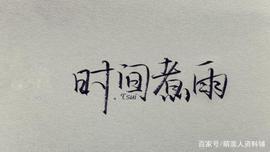 时间煮雨
Tsui
百家号/萌崽人资料铺